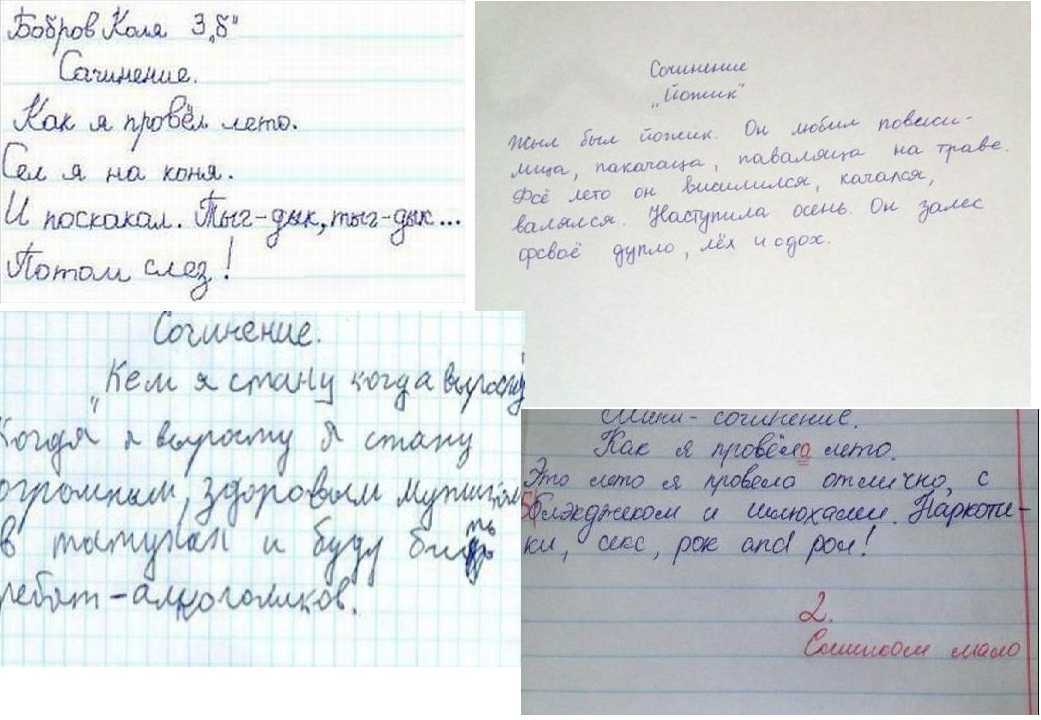 Бобров Коля 3 „б"
Сачинение.
Как я провёл лето.
Сел я на коня.
И поскакал. Тыг-дык, тыг-дык...
Потом слез!
Сочинение
„Йожик"
Жыл был йожик. Он любил повиси-
лица, пакачаца, паваляца на траве.
Фсё лето он висилился, качался,
валялся. Наступила осень. Он залес
фсваё дупло, лёх и сдох.
Сочинение.
„Кем я стану когда вырасту
Когда я вырасту я стану
огромным, здоровым мужиком
в татухах и буду бить
ребят-алкоголиков.
Мини-сочинение.
Как я провела лето.
Это лето я провела отлично, с
блэкджеком и шлюхами. Наркоти-
ки, секс, рок and рол!
2.
Слишком мало